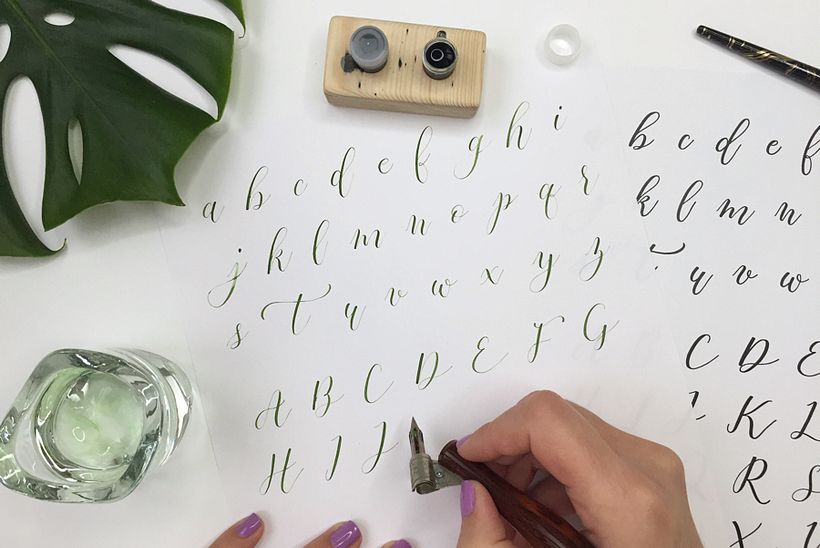 a b c d e f g h i
j k l m n o p q r
s t u v w x y z
A B C D E F G
H I J
b c d e f
k l m n
u v w
C D E
K L
R S
X